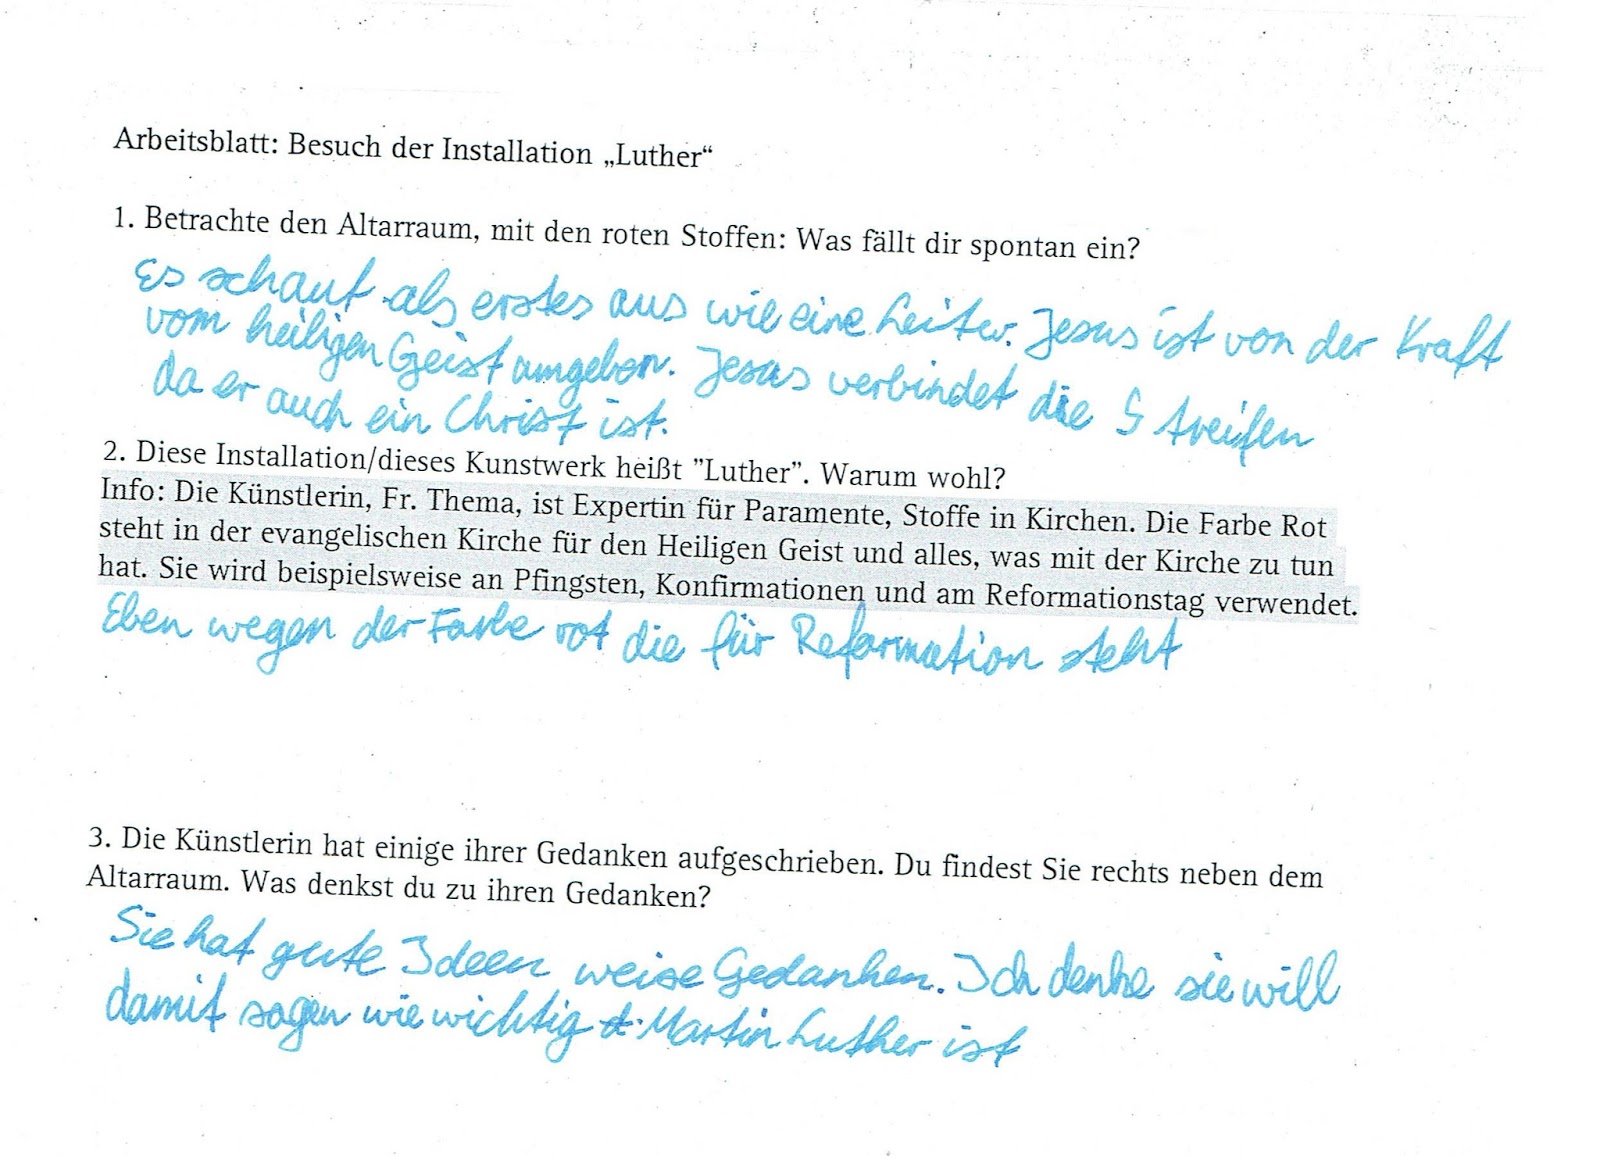 Arbeitsblatt: Besuch der Installation „Luther“
1. Betrachte den Altarraum, mit den roten Stoffen: Was fällt dir spontan ein?
Es schaut als erstes aus wie eine Leiter. Jesus ist von der Kraft
vom heiligen Geist umgeben. Jesus verbindet die 5 Streifen
da er auch ein Christ ist.
2. Diese Installation/dieses Kunstwerk heißt "Luther". Warum wohl?
Info: Die Künstlerin, Fr. Thema, ist Expertin für Paramente, Stoffe in Kirchen. Die Farbe Rot
steht in der evangelischen Kirche für den Heiligen Geist und alles, was mit der Kirche zu tun
hat. Sie wird beispielsweise an Pfingsten, Konfirmationen und am Reformationstag verwendet.
Eben wegen der Farbe rot die für Reformation steht
3. Die Künstlerin hat einige ihrer Gedanken aufgeschrieben. Du findest Sie rechts neben dem
Altarraum. Was denkst du zu ihren Gedanken?
Sie hat gute Ideen weise Gedanken. Ich denke sie will
damit sagen wie wichtig Martin Luther ist